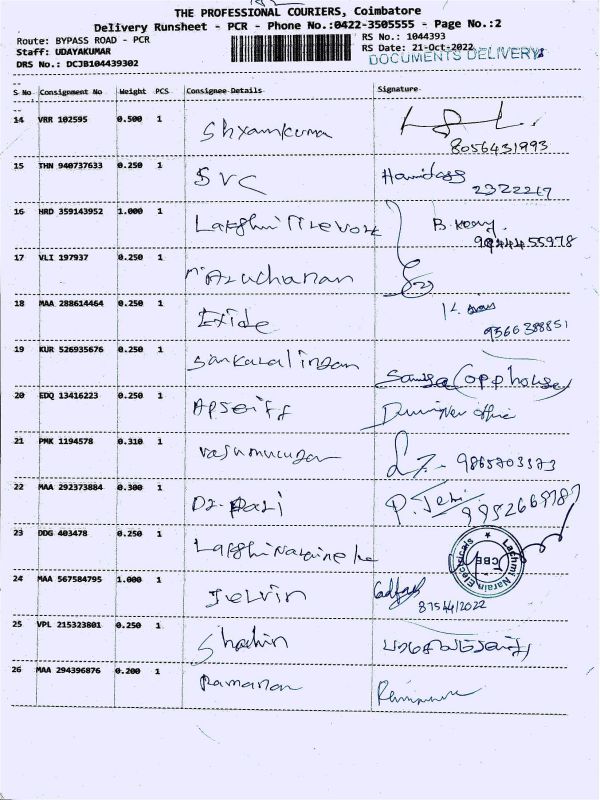 THE PROFESSIONAL COURIERS, Coimbatore
Delivery Runsheet - PCR - Phone No.:0422-3505555 - Page No.:2
Route: BYPASS ROAD - PCR
RS No.: 1044393
Staff: UDAYAKUMAR
RS Date: 21-Oct-2022
DOCUMENTS DELIVERY
DRS No.: DCJB104439302
S No Consignment No Weight PCS Consignee Details Signature
14 VRR 102595 0.500 1 Shyamkuma
8056431993
15 THN 940737633 0.250 1 SVC Hamidass
2322217
16 HRD 359143952 1.000 1 Lakshmi B.
9944455978
17 VLI 197937 0.250 1 Azuchanan
18 MAA 288614464 0.250 1 Exide K.
9566388851
19 KUR 526935676 0.250 1 Sankaralingam (opp house)
20 EDQ 13416223 0.250 1 office
21 PMK 1194578 0.310 1 Vasumurugan 9865703573
22 MAA 292373884 0.300 1 Dr. P. Jeni
9952669787
23 DDG 403478 0.250 1 Lakshi Naraine
Lachmi Narain Electricals
CBE
24 MAA 567584795 1.000 1 Jelvin
8154412022
25 VPL 215323801 0.250 1 Shachin
26 MAA 294396876 0.200 1 Ramanan